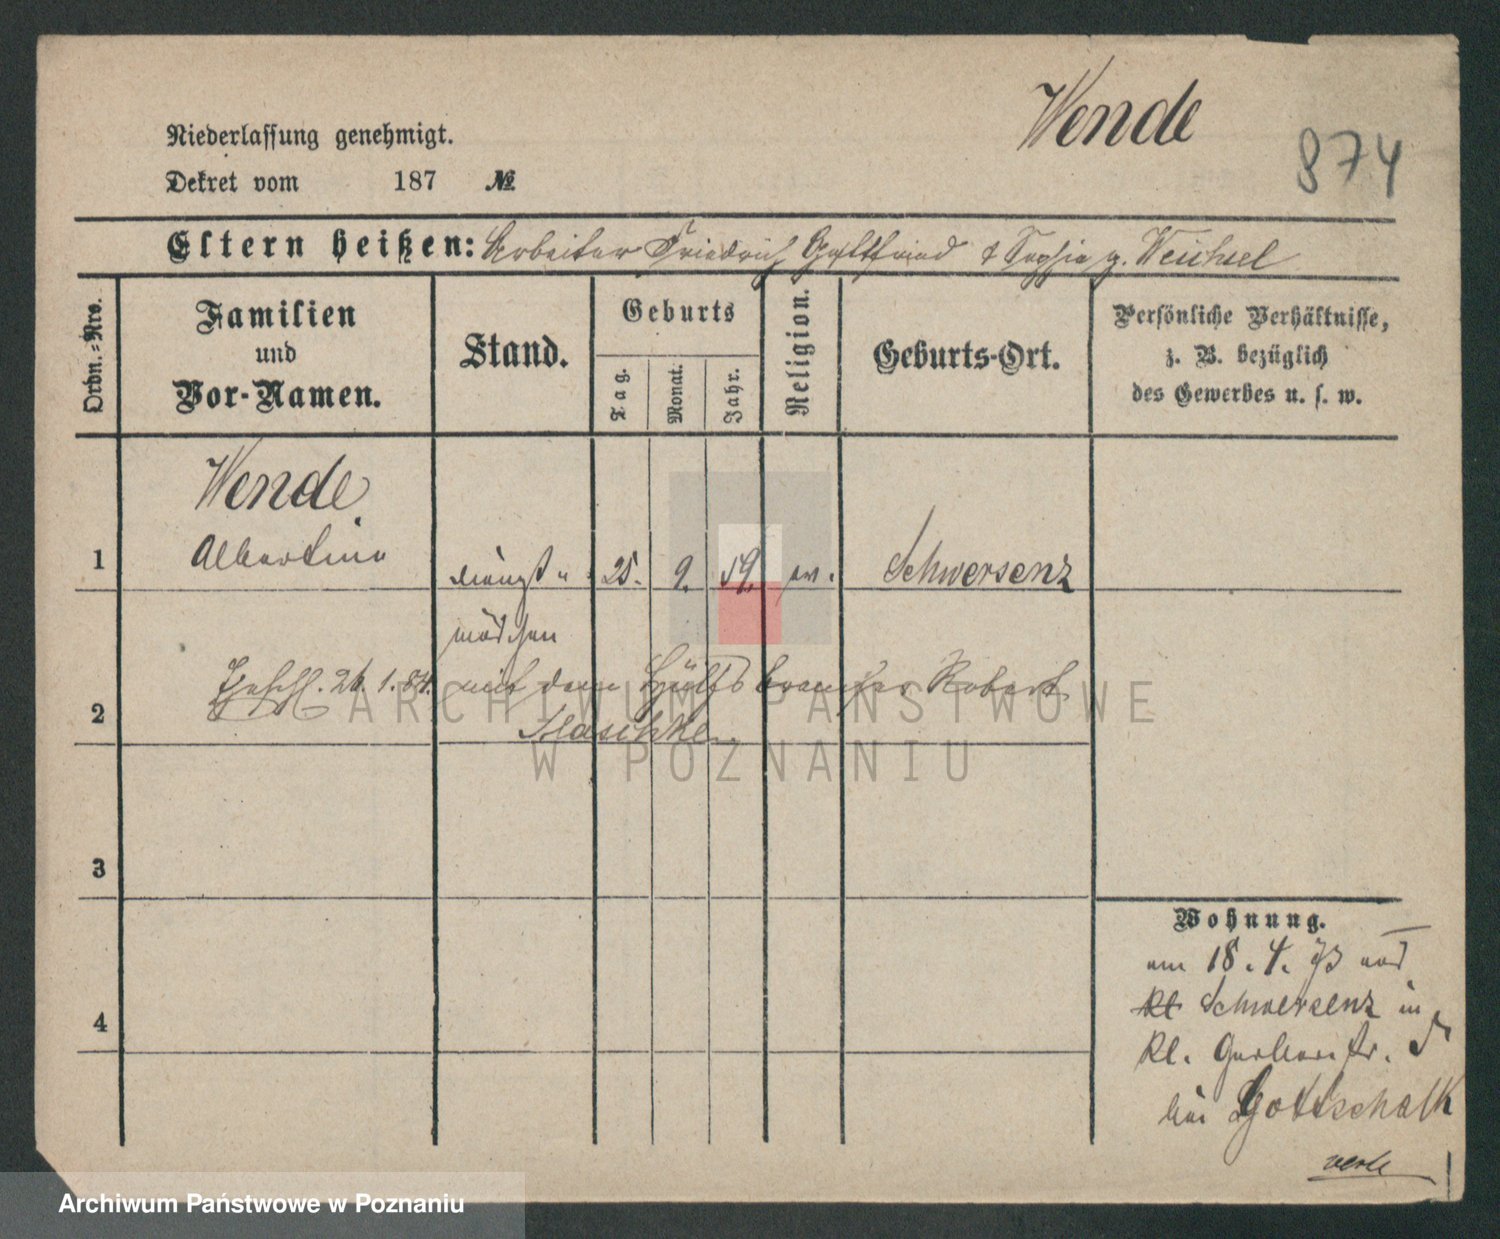 Wende
874
Niederlassung genehmigt.
Dekret vom 187 №
Eltern heißen: Arbeiter Friedrich Gottfried & Sophie g. Weichsel
Ordn.-Nro.
Familien
und
Vor-Namen.
Stand.
Geburts
Tag.
Monat.
Jahr.
Religion.
Geburts-Ort.
Persönliche Verhältnisse,
z. B. bezüglich
des Gewerbes u. s. w.
Wende
1 Albertine dienst- 25. 9. 59. ev. Schwersenz
mädchen
2 26.1.84. mit dem Robert
3
Wohnung.
am 18.4. 73 aus
Kl Schwersenz in
4
Kl. Gerberstr.
bei Gottschalk
verte
ARCHIWUM PAŃSTWOWE
W POZNANIU
Archiwum Państwowe w Poznaniu